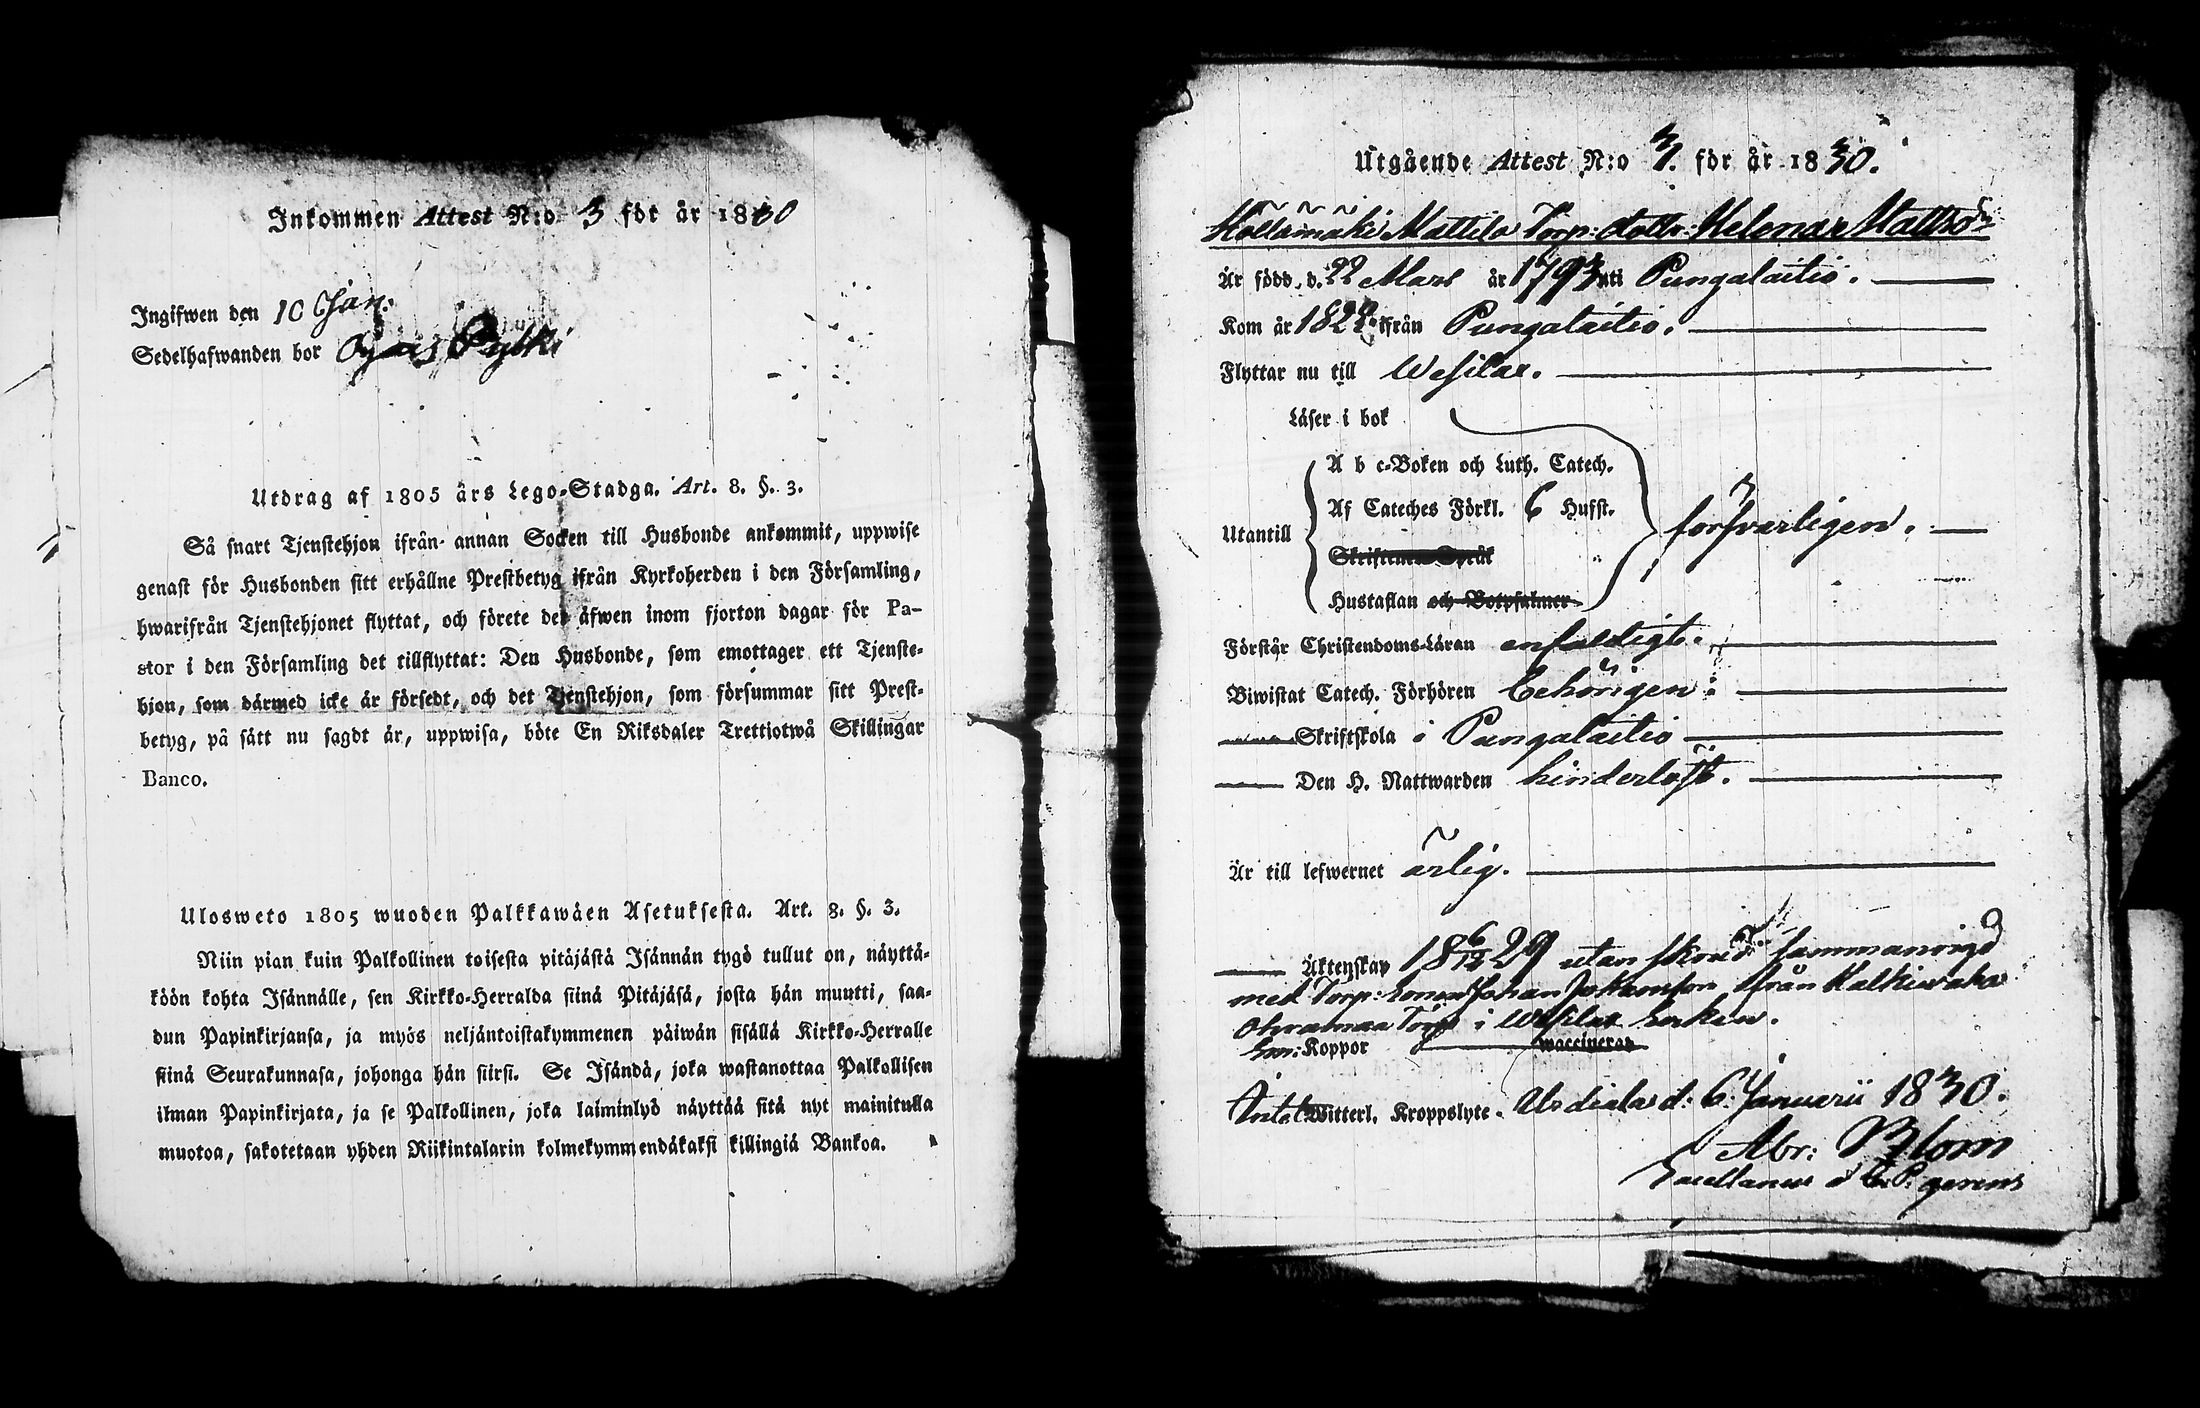 Inkommen Attest N:o 3 för år 1830
Ingifwen den 10 Jan:
Sedelhafwanden bor
Utdrag af 1805 års Lego-Stadga. Art. 8. §. 3.
Så snart Tjenstehjon ifrån annan Socken till Husbonde ankommit, uppwise
genast för Husbonden sitt erhållne Prestbetyg ifrån Kyrkoherden i den Församling,
hwarifrån Tjenstehjonet flyttat, och förete det äfwen inom fjorton dagar för Pa-
stor i den Församling det tillflyttat: Den Husbonde, som emottager ett Tjenste-
hjon, som därmed icke är försedt, och det Tjenstehjon, som försummar sitt Prest-
betyg, på sätt nu sagdt är, uppwisa, böte En Riksdaler Trettiotwå Skillingar
Banco.
Ulosweto 1805 wuoden Palkkawäen Asetuksesta. Art. 8. §. 3.
Niin pian kuin Palkollinen toisesta pitäjästä Isännän tygö tullut on, näyttä-
köön kohta Isännälle, sen Kirkko-Herralda siinä Pitäjäsä, josta hän muutti, saa-
dun Papinkirjansa, ja myös neljäntoistakymmenen päiwän sisällä Kirkko-Herralle
siinä Seurakunnasa, johonga hän siirsi. Se Isändä, joka wastanottaa Palkollisen
ilman Papinkirjata, ja se Palkollinen, joka laiminlyö näyttää sitä nyt mainitulla
muotoa, sakotetaan yhden Riikintalarin kolmekymmendäkaksi killingiä Bankoa.
Utgående Attest N:o 3. för år 1830.
Mattila Torp: dottr: Helena Mattsdr
Är född d. 22 Mars år 1793 uti Pungalaitio.
Kom år 1822 ifrån Pungalaitio.
Flyttar nu till Wesilax.
Läser i bok
A b c-Boken och Luth. Catech.
Af Cateches Förkl. 6 Hufst.
Utantill försvarligen.
Skriftenes Språk
Hustaflan och Botpsalmer
Förstår Christendoms-Läran enfaldigt.
Biwistat Catech. Förhören behörigen:
Skriftskola i Pungalaitio
Den H. Nattwarden hinderlöst.
Är till lefwernet ärlig.
Äktenskap 18 6/12 29 utan skrud sammanvigd
med Torp: sonen Johan Johansson från
Torp i Wesilax Socken.
Koppor waccinerad
Witterl. Kroppslyte. Urdiala d: 6 Januarii 1830.
Abr: Blom
Sacellanus gerens